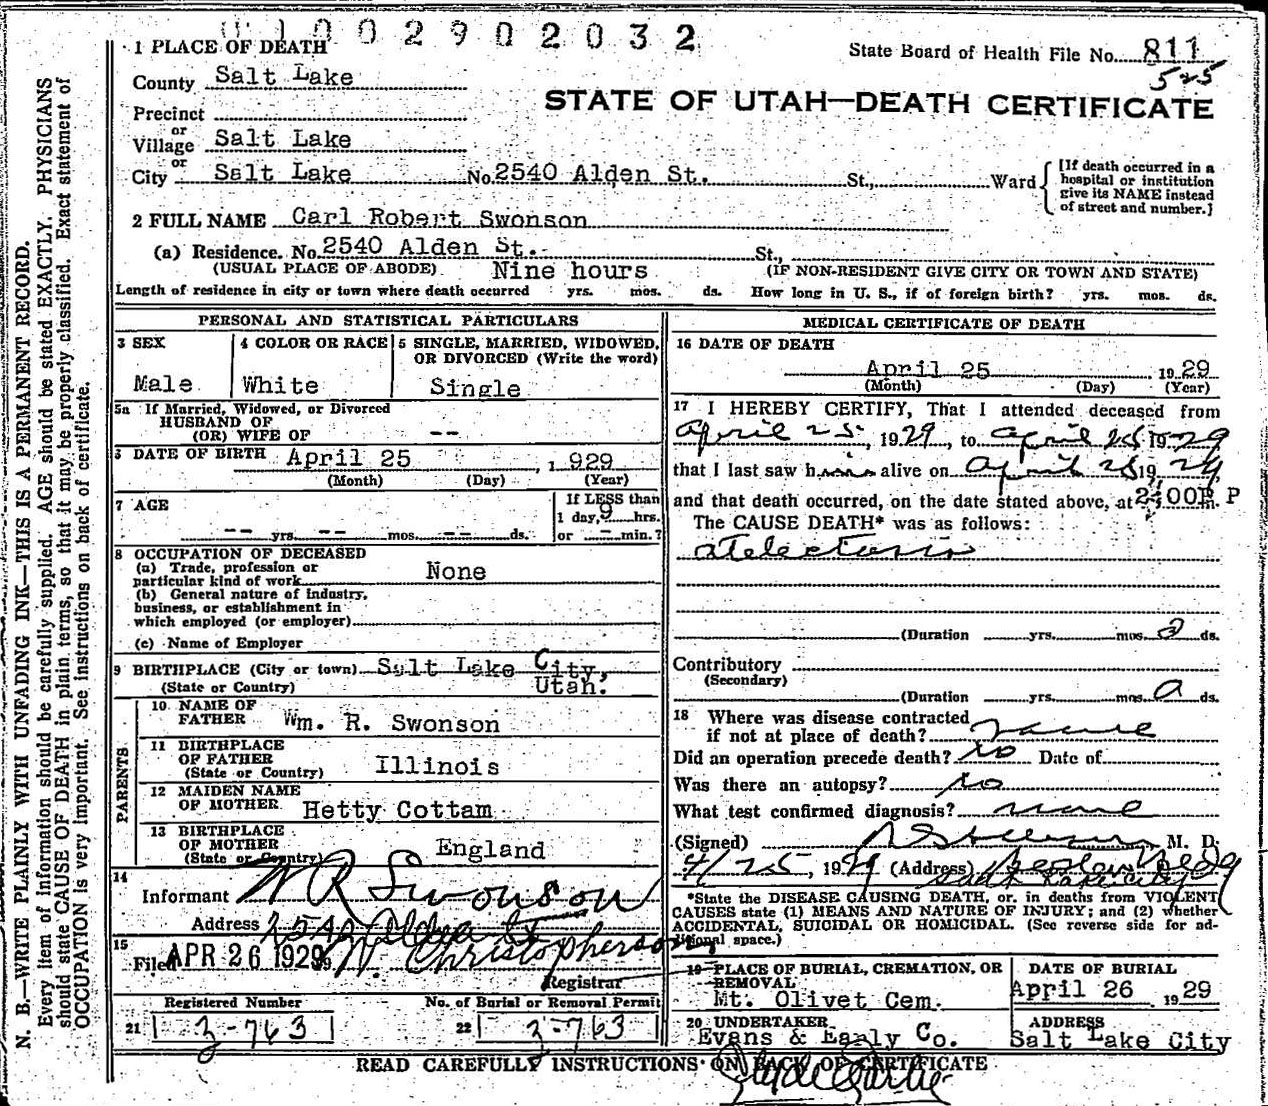 1002902032
State Board of Health File No. 811
525
STATE OF UTAH—DEATH CERTIFICATE
1 PLACE OF DEATH
County Salt Lake
Precinct
or
Village Salt Lake
or
City Salt Lake No. 2540 Alden St. St., Ward
[If death occurred in a
hospital or institution
give its NAME instead
of street and number.]
2 FULL NAME Carl Robert Swonson
(a) Residence. No. 2540 Alden St. St.,
(USUAL PLACE OF ABODE) Nine hours (IF NON-RESIDENT GIVE CITY OR TOWN AND STATE)
Length of residence in city or town where death occurred yrs. mos. ds. How long in U. S., if of foreign birth? yrs. mos. ds.
N. B.—WRITE PLAINLY WITH UNFADING INK—THIS IS A PERMANENT RECORD.
Every item of information should be carefully supplied. AGE should be stated EXACTLY. PHYSICIANS
should state CAUSE OF DEATH in plain terms, so that it may be properly classified. Exact statement of
OCCUPATION is very important. See instructions on back of certificate.
PERSONAL AND STATISTICAL PARTICULARS
3 SEX 4 COLOR OR RACE 5 SINGLE, MARRIED, WIDOWED,
OR DIVORCED (Write the word)
Male White Single
5a If Married, Widowed, or Divorced
HUSBAND OF
(OR) WIFE OF --
6 DATE OF BIRTH April 25, 1929
(Month) (Day) (Year)
7 AGE If LESS than
1 day, 9 hrs.
-- yrs. -- mos. -- ds. or - min.?
8 OCCUPATION OF DECEASED
(a) Trade, profession or
particular kind of work None
(b) General nature of industry,
business, or establishment in
which employed (or employer)
(c) Name of Employer
9 BIRTHPLACE (City or town) Salt Lake City,
(State or Country) Utah.
PARENTS
10 NAME OF
FATHER Wm. R. Swonson
11 BIRTHPLACE
OF FATHER
(State or Country) Illinois
12 MAIDEN NAME
OF MOTHER Hetty Cottam
13 BIRTHPLACE
OF MOTHER
(State or Country) England
14
Informant W R Swonson
Address 2540 Alden St
15
Filed APR 26 1929 W. Christopherson,
Registrar
Registered Number No. of Burial or Removal Permit
21 z-763 22 z-763
MEDICAL CERTIFICATE OF DEATH
16 DATE OF DEATH
April 25 1929
(Month) (Day) (Year)
17 I HEREBY CERTIFY, That I attended deceased from
April 25, 1929, to April 25 1929
that I last saw him alive on April 25 1929,
and that death occurred, on the date stated above, at 2:00P m. P
The CAUSE DEATH* was as follows:
Atelectasis
(Duration yrs. mos. ds.
Contributory
(Secondary)
(Duration yrs. mos. ds.
18 Where was disease contracted
if not at place of death?
Did an operation precede death? no Date of
Was there an autopsy? no
What test confirmed diagnosis? none
(Signed) M. D.
4/25, 1929 (Address) Bldg
Salt Lake City
*State the DISEASE CAUSING DEATH, or, in deaths from VIOLENT
CAUSES state (1) MEANS AND NATURE OF INJURY; and (2) whether
ACCIDENTAL, SUICIDAL OR HOMICIDAL. (See reverse side for ad-
ditional space.)
19 PLACE OF BURIAL, CREMATION, OR
REMOVAL
Mt. Olivet Cem.
DATE OF BURIAL
April 26 1929
20 UNDERTAKER
Evans & Early Co.
ADDRESS
Salt Lake City
READ CAREFULLY INSTRUCTIONS ON BACK OF CERTIFICATE